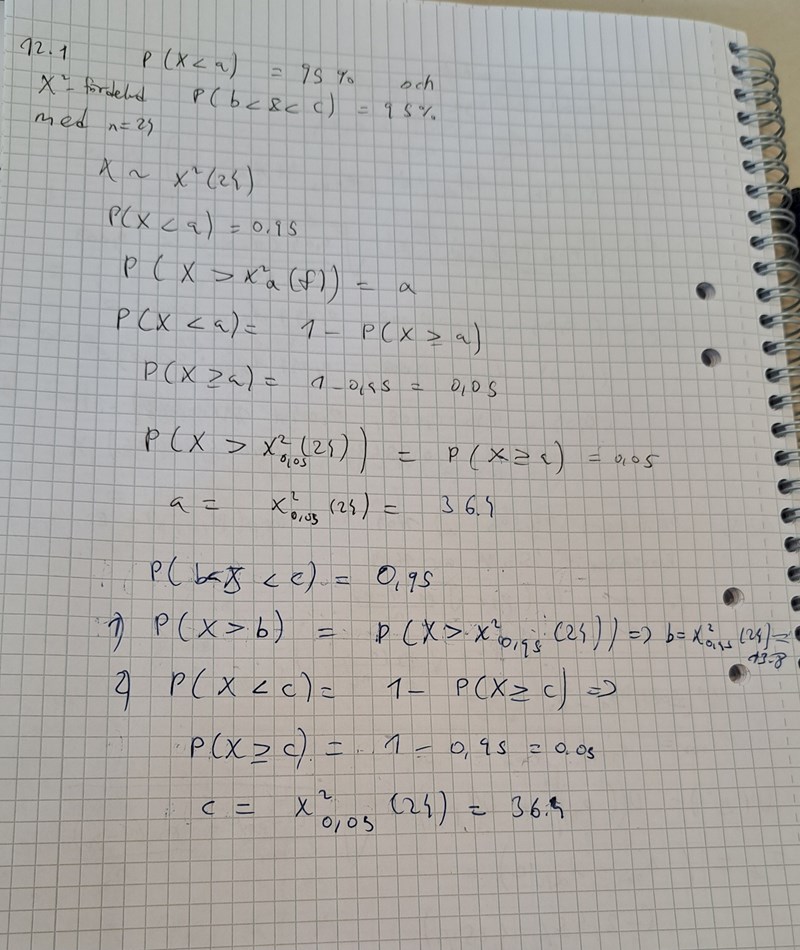 12.1 P(X < a) = 95 % och
X²-fördelad P(b < X < c) = 95%
med n=24
X ~ X²(24)
P(X < a) = 0,95
P(X > X²a(f)) = a
P(X < a) = 1 - P(X ≥ a)
P(X ≥ a) = 1-0,95 = 0,05
P(X > X²0,05(24)) = P(X ≥ a) = 0,05
a = X²0,05(24) = 36.4
P(b<X < c) = 0,95
1) P(X > b) = P(X > X²0,95(24)) => b = X²0,95(24) =
13.8
2) P(X < c) = 1 - P(X ≥ c) =>
P(X ≥ c) = 1 - 0,95 = 0.05
c = X²0,05 (24) = 36.4